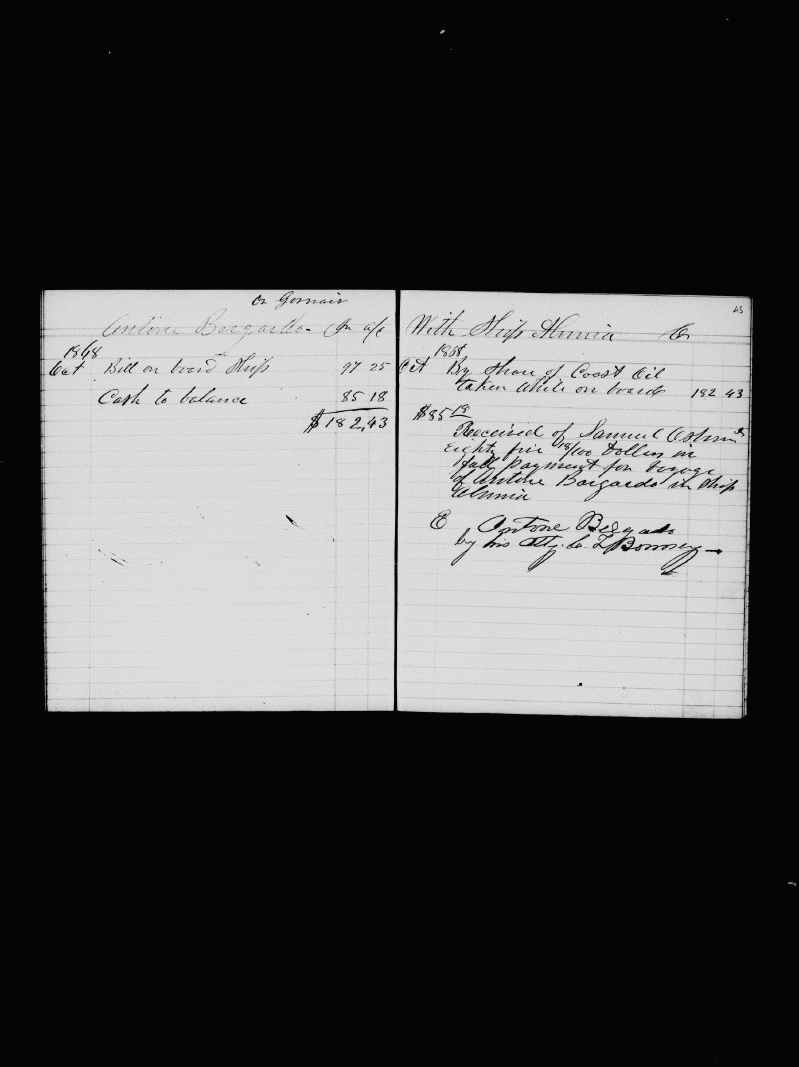 or Gomair
Antone Bergardo - In a/c
1868
Oct Bill on board Ship 97 25
Cash to balance 85 18
$182,43
45
With Ship Almira Cr
1868
Oct By Share of Coast Oil
taken while on board 182 43
$85 18
Received of Samuel Osborn Jr
Eighty five 18/100 Dollars in
full payment for voyage
of Antone Bargardo in Ship
Almira
E Antone Bergado
by his Atty.